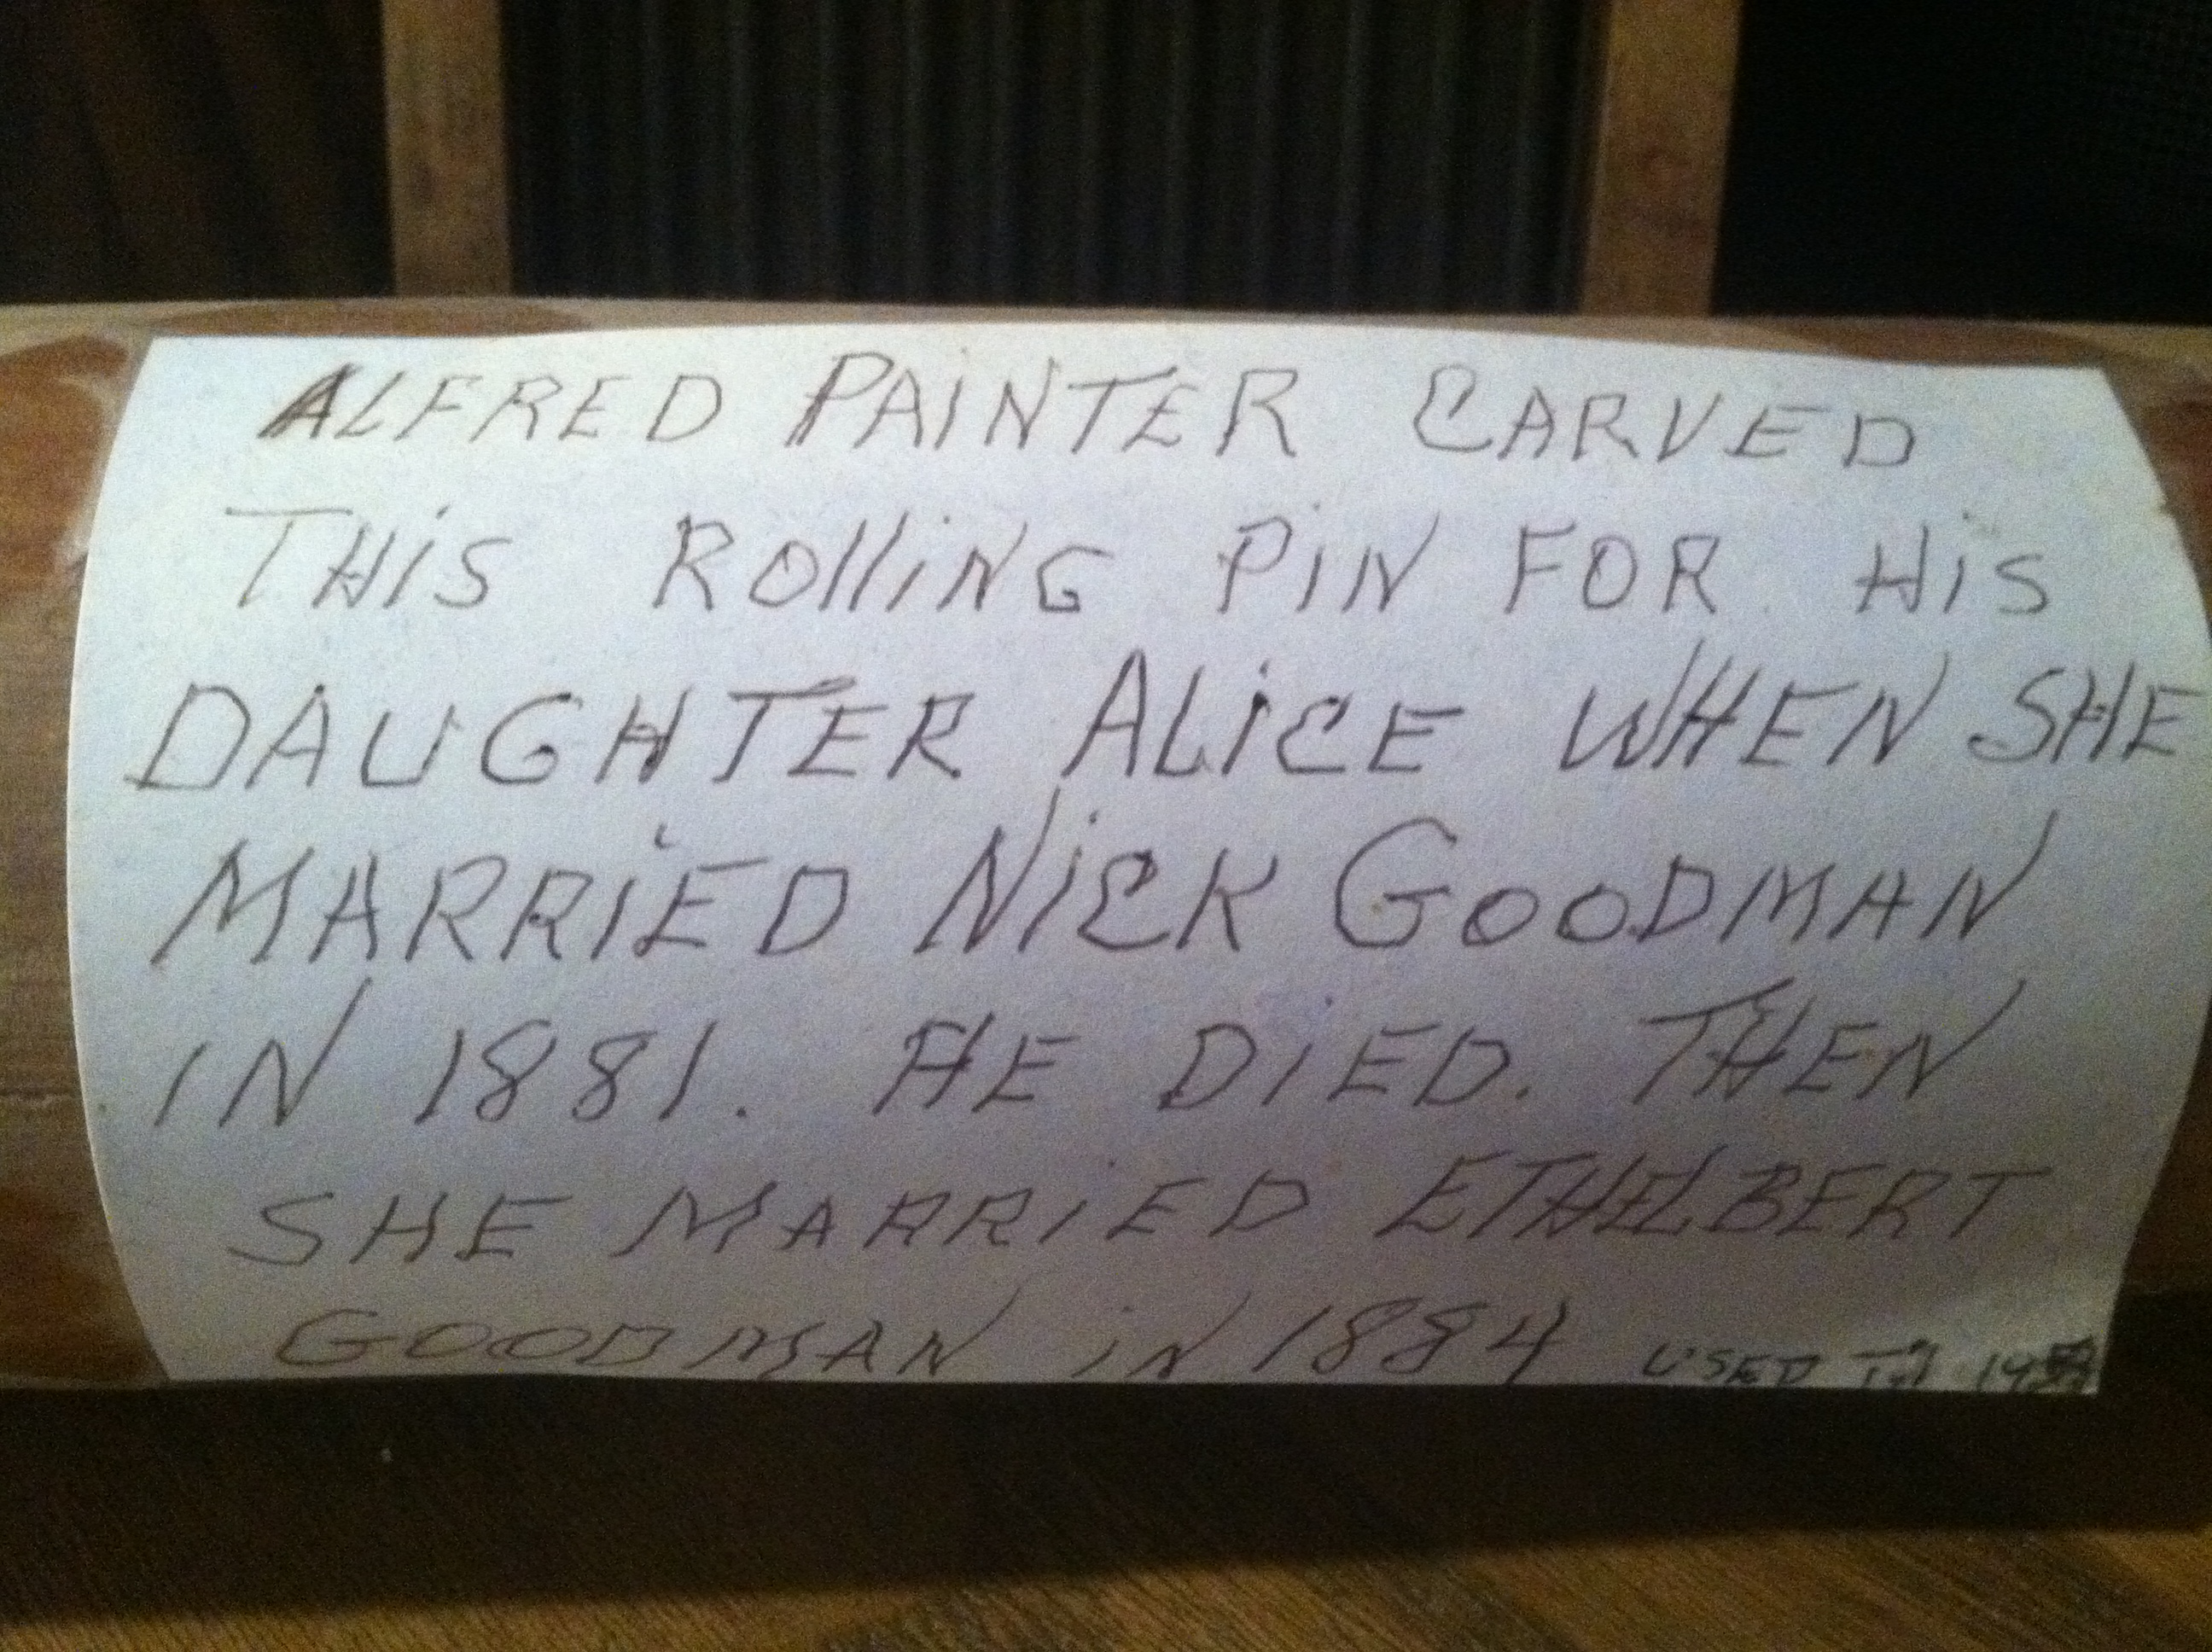 ALFRED PAINTER CARVED
THiS ROlliNG PiN FOR HiS
DAUGHTER ALiCE WHEN SHE
MARRiED NiCK GOODMAN
IN 1881. HE DiED. THEN
SHE MARRiED ETHELBERT
GOODMAN iN 1884 USED Til